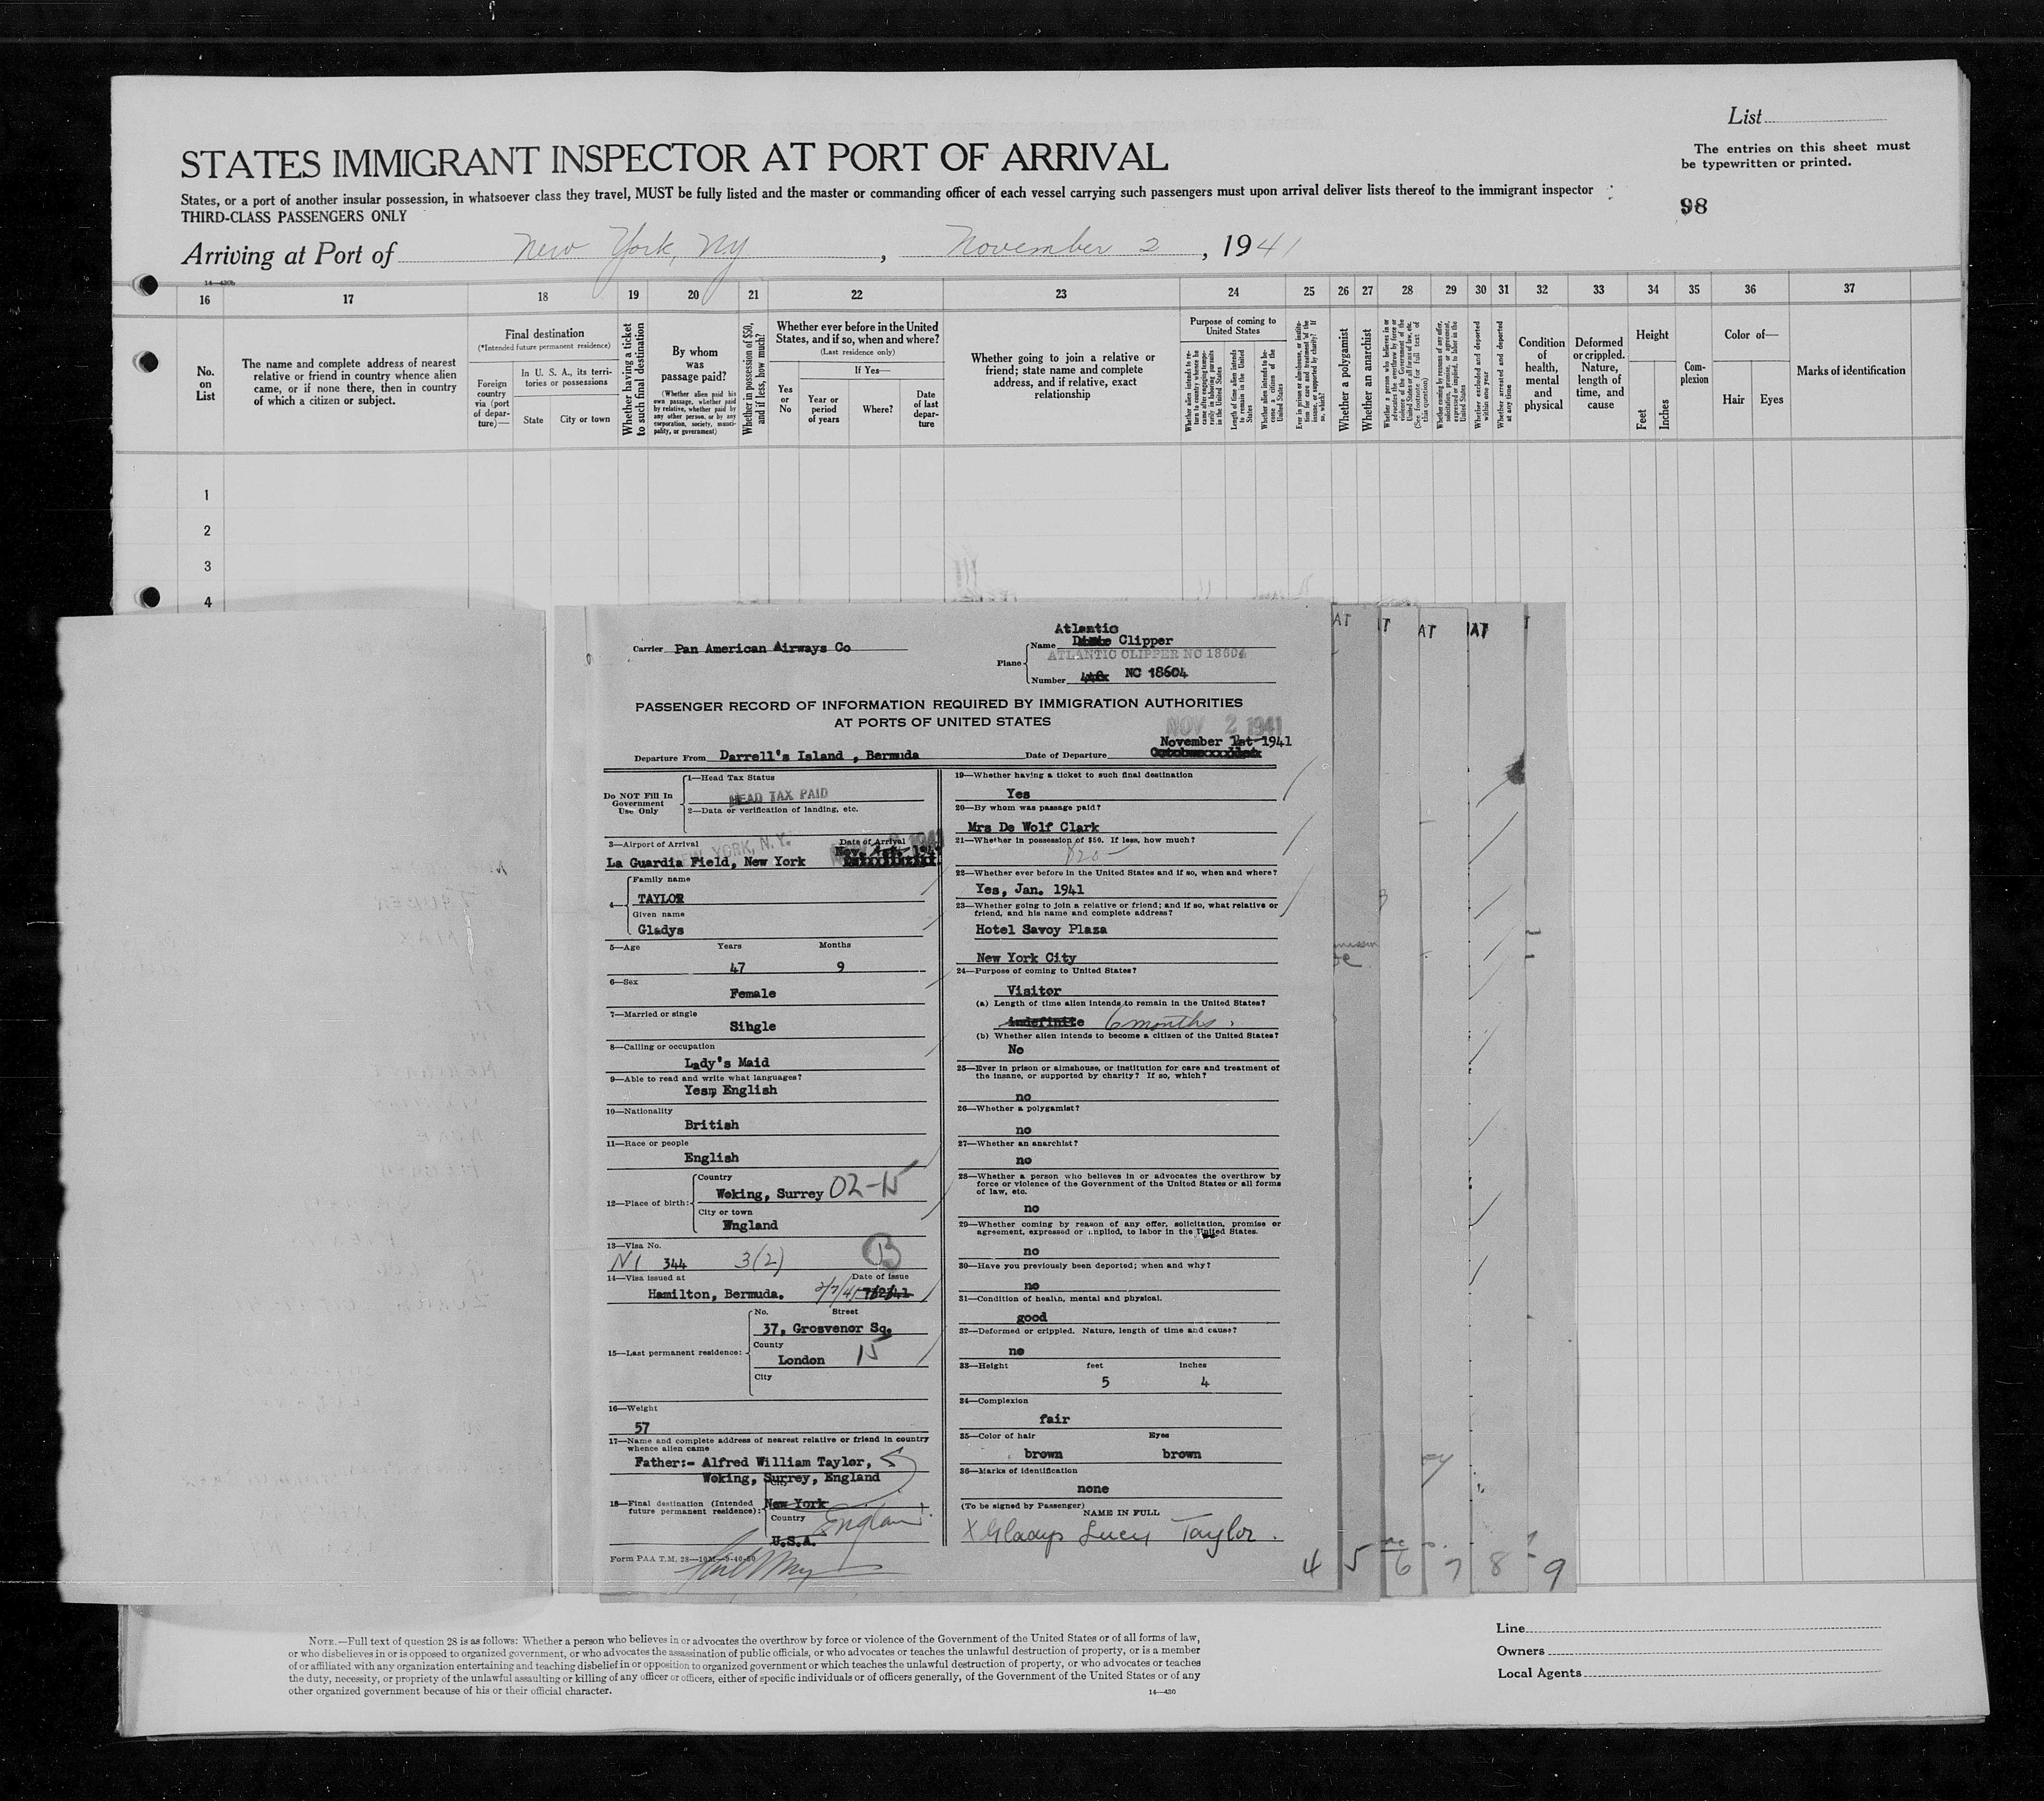 List
STATES IMMIGRANT INSPECTOR AT PORT OF ARRIVAL
The entries on this sheet must
be typewritten or printed.
States, or a port of another insular possession, in whatsoever class they travel, MUST be fully listed and the master or commanding officer of each vessel carrying such passengers must upon arrival deliver lists thereof to the immigrant inspector
THIRD-CLASS PASSENGERS ONLY
98
Arriving at Port of New York, NY, November 2, 1941
14—430b
16 17 18 19 20 21 22 23 24 25 26 27 28 29 30 31 32 33 34 35 36 37
No.
on
List
The name and complete address of nearest
relative or friend in country whence alien
came, or if none there, then in country
of which a citizen or subject.
Final destination
(*Intended future permanent residence)
Foreign
country
via (port
of depar-
ture)—
In U. S. A., its terri-
tories or possessions
State City or town
Whether having a ticket
to such final destination
By whom
was
passage paid?
(Whether alien paid his
own passage, whether paid
by relative, whether paid by
any other person, or by any
corporation, society, munici-
pality, or government)
Whether in possession of $50,
and if less, how much?
Whether ever before in the United
States, and if so, when and where?
(Last residence only)
Yes
or
No
If Yes—
Year or
period
of years
Where?
Date
of last
depar-
ture
Whether going to join a relative or
friend; state name and complete
address, and if relative, exact
relationship
Purpose of coming to
United States
Whether alien intends to re-
turn to country whence he
came after engaging tempo-
rarily in laboring pursuits
in the United States
Length of time alien intends
to remain in the United
States
Whether alien intends to be-
come a citizen of the United
States
Ever in prison or almshouse, or institu-
tion for care and treatment of the
insane, or supported by charity? If
so, which?
Whether a polygamist
Whether an anarchist
Whether a person who believes in or
advocates the overthrow by force or
violence of the Government of the
United States or all forms of law, etc.
(See footnote for full text of
this question)
Whether coming by reasons of any offer,
solicitation, promise, or agreement,
expressed or implied, to labor in the
United States
Whether excluded and deported
within one year
Whether arrested and deported
at any time
Condition
of
health,
mental
and
physical
Deformed
or crippled.
Nature,
length of
time, and
cause
Height
Feet
Inches
Com-
plexion
Color of—
Hair Eyes
Marks of identification
1
2
3
4
Carrier Pan American Airways Co
Atlantic
Plane Name Clipper
ATLANTIC CLIPPER NC 18604
Number NC 18604
PASSENGER RECORD OF INFORMATION REQUIRED BY IMMIGRATION AUTHORITIES
AT PORTS OF UNITED STATES
NOV 2 1941
November 1st 1941
Departure From Darrell's Island , Bermuda Date of Departure
Do NOT Fill In
Government
Use Only
1—Head Tax Status
HEAD TAX PAID
2—Data or verification of landing, etc.
3—Airport of Arrival Date of Arrival
YORK, N.Y.
La Guardia Field, New York
4—Family name
TAYLOR
Given name
Gladys
5—Age Years Months
47 9
6—Sex
Female
7—Married or single
Sihgle
8—Calling or occupation
Lady's Maid
9—Able to read and write what languages?
Yes, English
10—Nationality
British
11—Race or people
English
12—Place of birth: Country
Woking, Surrey 02-15
City or town
England
13—Visa No.
NI 344 3(2) B
14—Visa issued at Date of issue
Hamilton, Bermuda. 7/2/41
15—Last permanent residence: No. Street
37, Grosvenor Sq.
County
London 15
City
16—Weight
57
17—Name and complete address of nearest relative or friend in country
whence alien came
Father:- Alfred William Taylor,
Woking, Surrey, England
18—Final destination (Intended
future permanent residence): City
New York
Country England
U.S.A.
Form PAA T.M. 28—10M—9-40-50
19—Whether having a ticket to such final destination
Yes
20—By whom was passage paid?
Mrs De Wolf Clark
21—Whether in possession of $50. If less, how much?
22—Whether ever before in the United States and if so, when and where?
Yes, Jan. 1941
23—Whether going to join a relative or friend; and if so, what relative or
friend, and his name and complete address?
Hotel Savoy Plaza
New York City
24—Purpose of coming to United States?
Visitor
(a) Length of time alien intends to remain in the United States?
indefinite 6 months.
(b) Whether alien intends to become a citizen of the United States?
No
25—Ever in prison or almshouse, or institution for care and treatment of
the insane, or supported by charity? If so, which?
no
26—Whether a polygamist?
no
27—Whether an anarchist?
no
28—Whether a person who believes in or advocates the overthrow by
force or violence of the Government of the United States or all forms
of law, etc.
no
29—Whether coming by reason of any offer, solicitation, promise or
agreement, expressed or implied, to labor in the United States.
no
30—Have you previously been deported; when and why?
no
31—Condition of health, mental and physical.
good
32—Deformed or crippled. Nature, length of time and cause?
no
33—Height feet inches
5 4
34—Complexion
fair
35—Color of hair Eyes
brown brown
36—Marks of identification
none
(To be signed by Passenger)
NAME IN FULL
X Gladys Lucy Taylor.
4 5 6 7 8 9
NOTE.—Full text of question 28 is as follows: Whether a person who believes in or advocates the overthrow by force or violence of the Government of the United States or of all forms of law,
or who disbelieves in or is opposed to organized government, or who advocates the assassination of public officials, or who advocates or teaches the unlawful destruction of property, or is a member
of or affiliated with any organization entertaining and teaching disbelief in or opposition to organized government or which teaches the unlawful destruction of property, or who advocates or teaches
the duty, necessity, or propriety of the unlawful assaulting or killing of any officer or officers, either of specific individuals or of officers generally, of the Government of the United States or of any
other organized government because of his or their official character.
14—430
Line
Owners
Local Agents